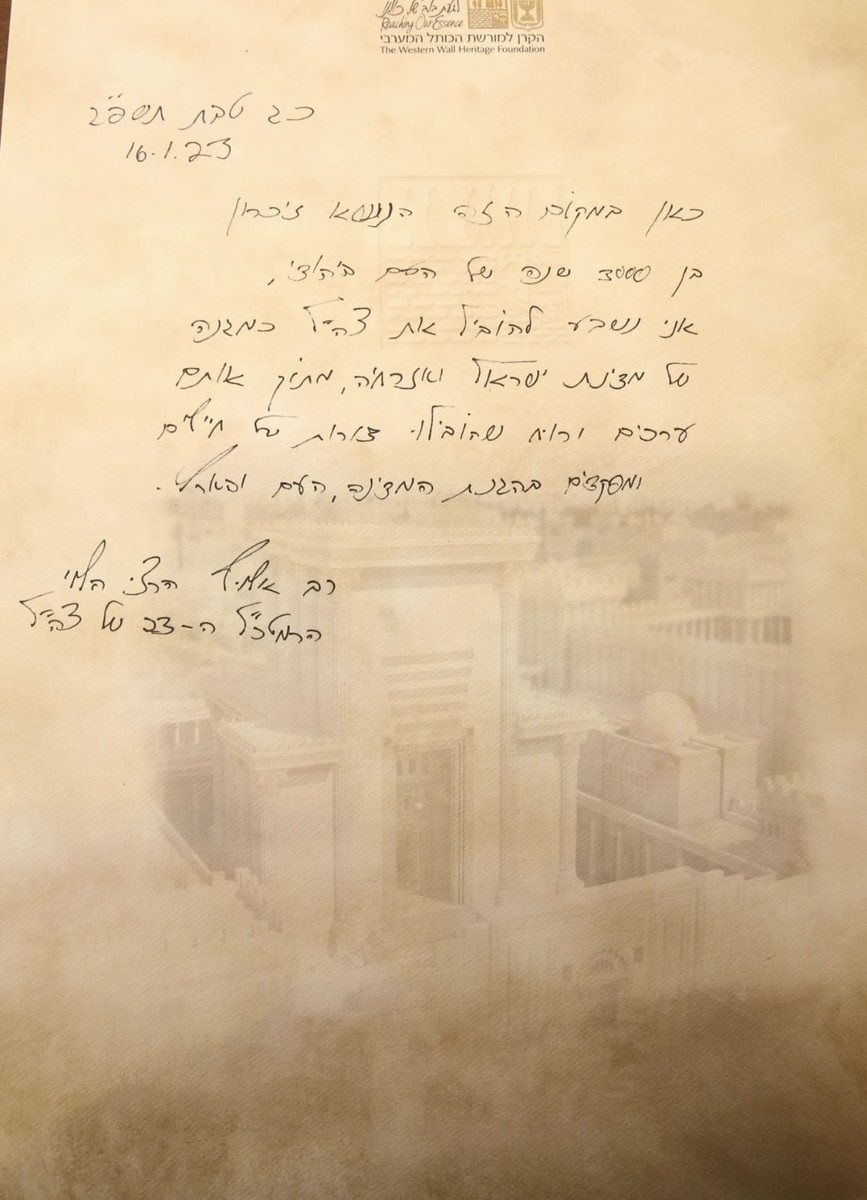 Reaching Our Essence
הקרן למורשת הכותל המערבי
The Western Wall Heritage Foundation
כג טבת תשפ"ג
16.1.23
כאן במקום הזה הנושא זיכרון
בן 3000 שנה של העם היהודי,
אני נשבע להוביל את צה"ל כמגנה
של מדינת ישראל ואזרחיה, מתוך אותם
ערכים ורוח שהובילו דורות של חיילים
ומפקדים בהגנת המדינה, העם והארץ.
רב אלוף הרצי הלוי
הרמטכ"ל ה-23 של צה"ל